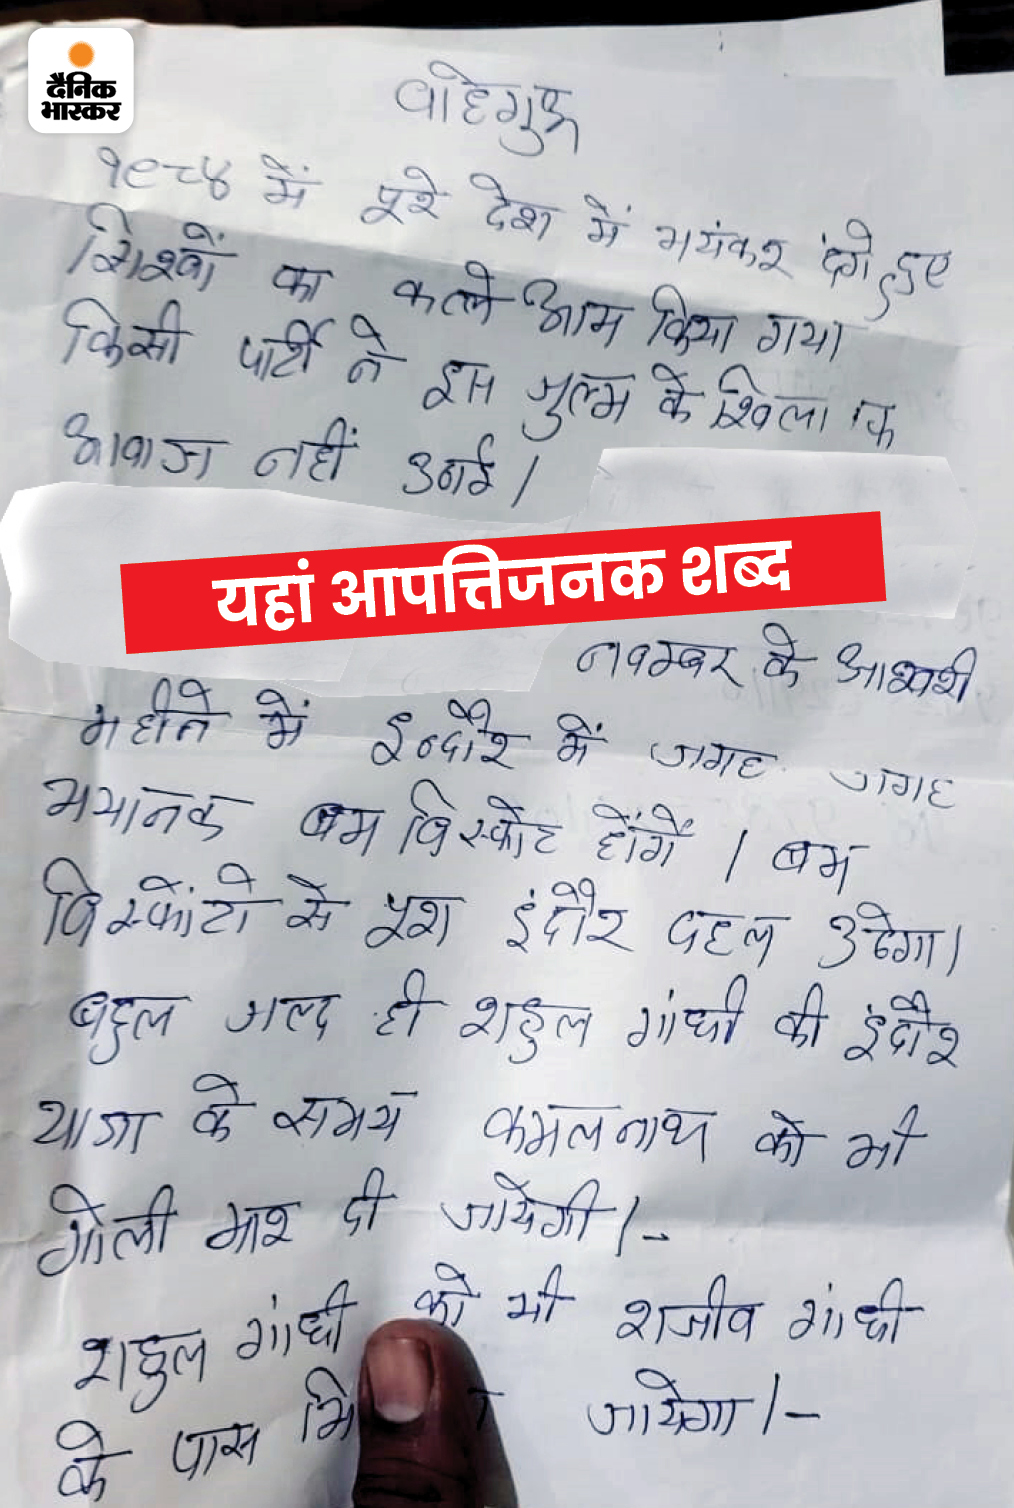 दैनिक
भास्कर
वाहेगुरू
१९८४ में पूरे देश में भयंकर दंगे हुए
सिखों का कत्ले आम किया गया
किसी पार्टी ने इस जुल्म के खिलाफ
आवाज नहीं उठाई।
यहां आपत्तिजनक शब्द
नवम्बर के आखरी
महीने में इन्दौर में जगह जगह
भयानक बम विस्फोट होंगें। बम
विस्फोंटो से पूरा इंदौर दहल उठेगा।
बहुत जल्द ही राहुल गांधी की इंदौर
यात्रा के समय कमलनाथ को भी
गोली मार दी जायेगी।-
राहुल गांधी को भी राजीव गांधी
के पास जायेगा।-